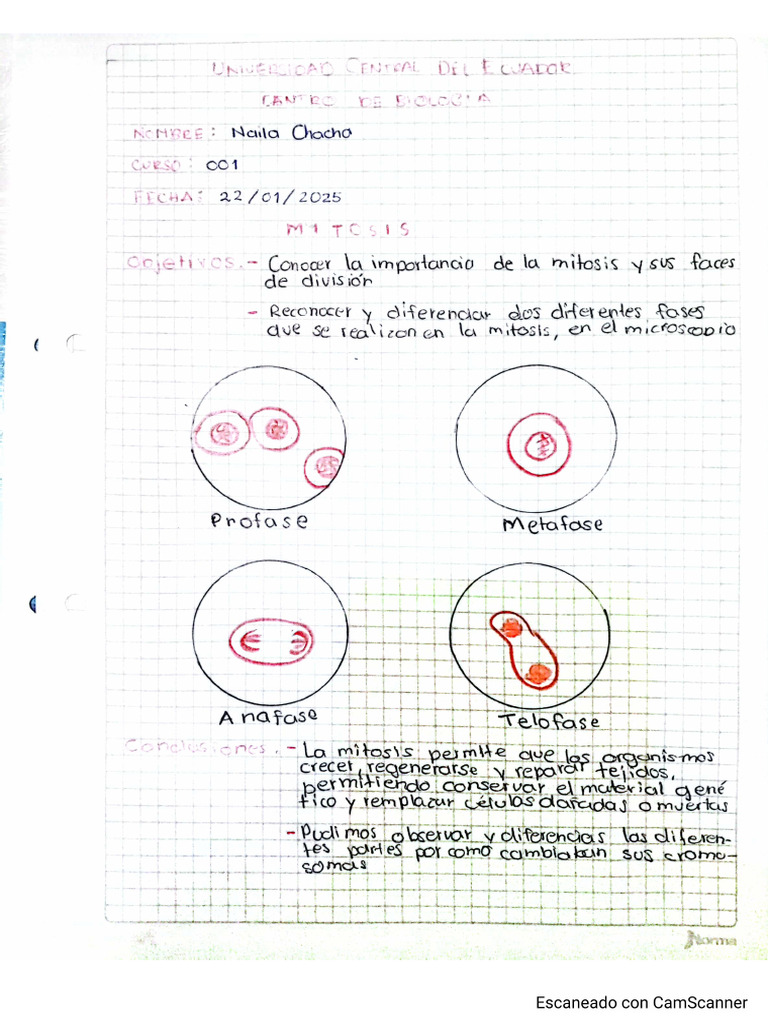 UNIVERSIDAD CENTRAL DEL ECUADOR
CENTRO DE BIOLOGIA
NOMBRE: Naila Chacho
CURSO: 001
FECHA: 22/01/2025
MITOSIS
Objetivos.- Conocer la importancia de la mitosis y sus faces
de división
- Reconocer y diferenciar dos diferentes fases
que se realizan en la mitosis, en el microscopio
Profase
Metafase
Anafase
Telofase
Conclusiones.- La mitosis permite que los organismos
crecer, regenerarse y reparar tejidos,
permitiendo conservar el material gené
tico y remplazar células dañadas o muertas
- Pudimos observar y diferencias las diferen-
tes partes por como cambiaban sus cromo-
somas
Norma
Escaneado con CamScanner